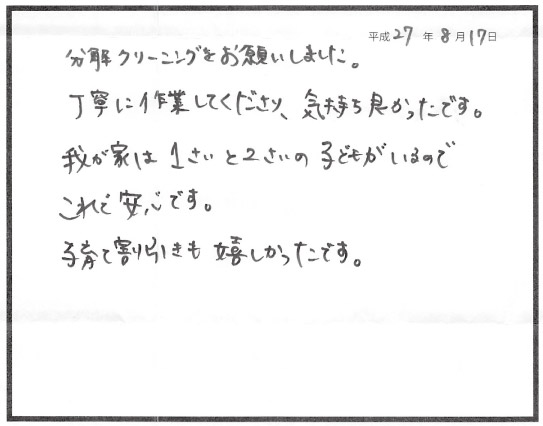 平成27年8月17日
分解クリーニングをお願いしました。
丁寧に作業してくださり、気持ち良かったです。
我が家は1さいと2さいの子どもがいるので
これで安心です。
子育て割引きも嬉しかったです。